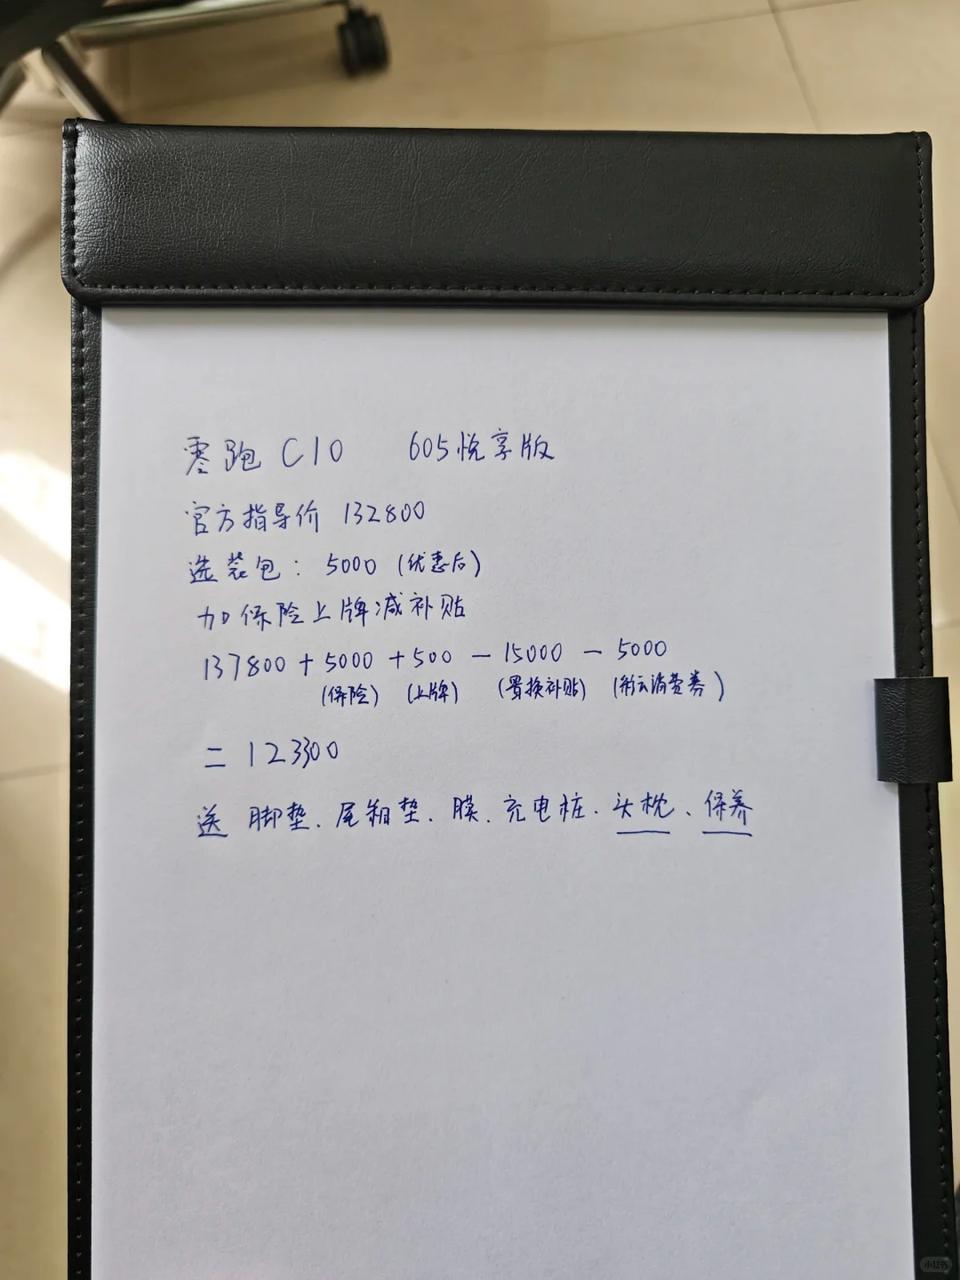 零跑 C10 605悦享版
官方指导价 132800
选装包: 5000 (优惠后)
加保险上牌减补贴
137800 + 5000 + 500 - 15000 - 5000
(保险) (上牌) (置换补贴) (消费券)
= 123300
送 脚垫、尾箱垫、膜、充电桩、头枕、保养
小红书